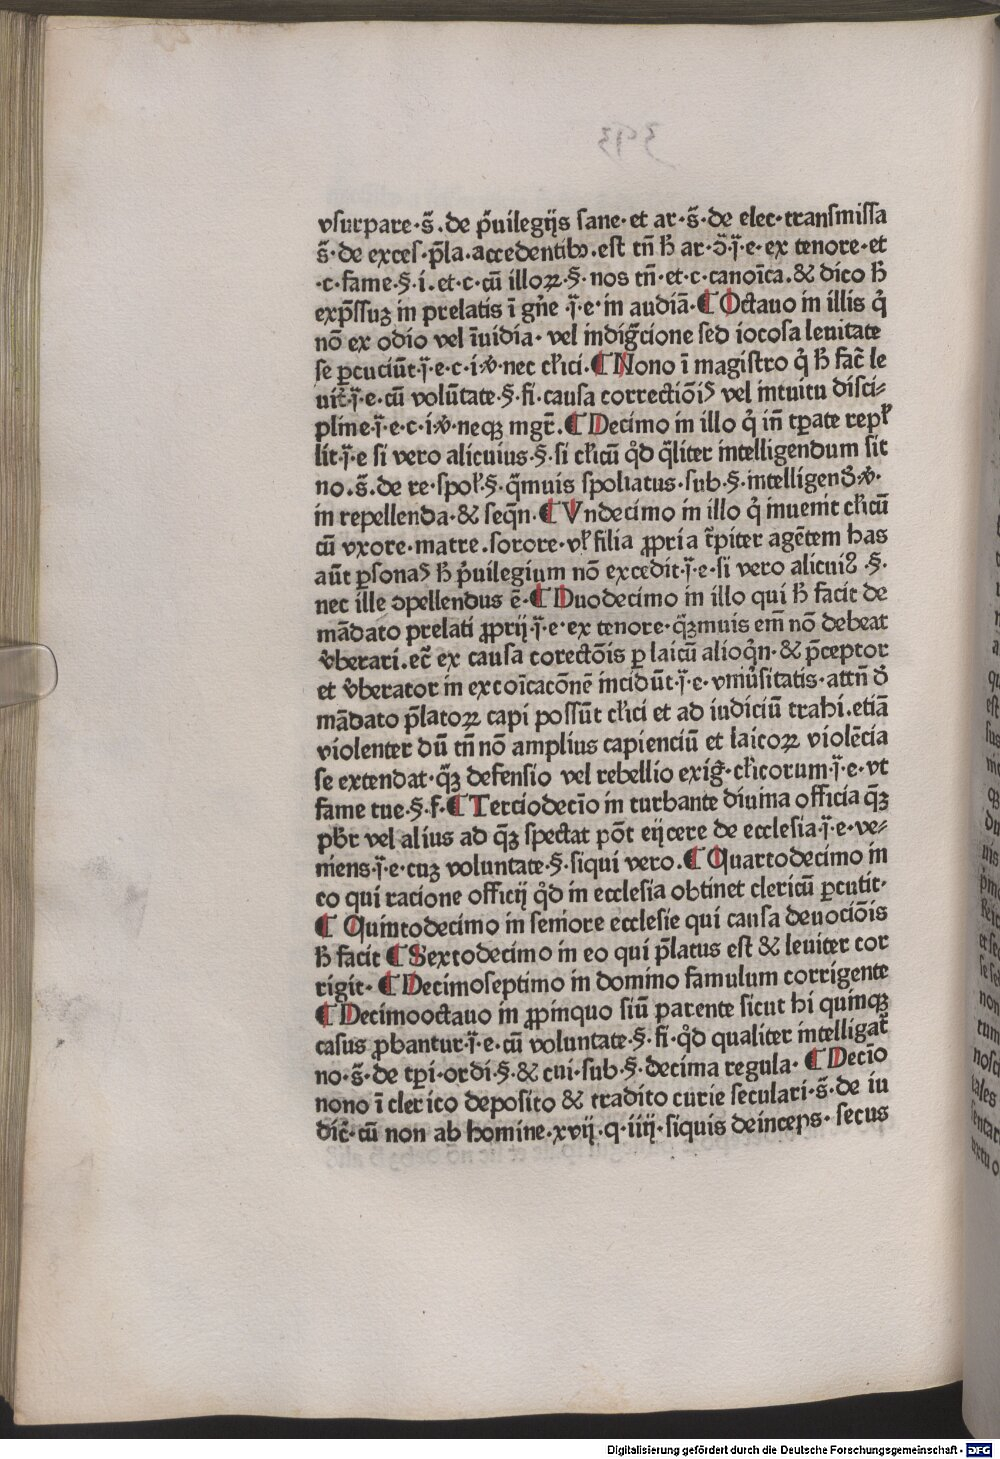 vsurpare·s̄·de p̄uilegijs sane·et ar·s̄·de elec·transmissa
s̄·de exces·p̄la·accedentibꝰ·est tn̄ ħ ar·ꝯ·ī·e·ex tenore·et
·c·fame·§·i·et·c·cū illoꝝ·§·nos tn̄·et·c·canoīca·& dico ħ
exp̄ssuꝫ in prelatis ī gn̄e·ī·e·in audiā·¶ Octauo in illis q̇
nō ex odio vel īuidia·vel indigc̄ione sed iocosa leuitate
se ꝑcuciūt·ī·e·c·i·ꝟ·nec cl̄ici·¶ Nono ī magistro q̇ ħ fac̄ le
uit̄·ī·e·cū volūtate·§·fi·causa correctiōis vel intuitu disci⸗
pline·ī·e·c·i·ꝟ·neqꝫ mgr̄·¶ Decimo in illo q̇ in̄ tꝑate repl̄
lit·ī·e si vero alicuius·§·si cl̄icū qͦd q̄liter intelligendum sit
no·s̄·de re·spol̄·§·q̄muis spoliatus·sub·§·intelligend̄·ꝟ·
in repellenda·& seqn̄·¶ Vndecimo in illo q̇ inuenit cl̄icū
cū vxore·matre·sorore·vl̄ filia ꝓpria t̄piter agētem has
aūt ꝑsonas ħ p̄uilegium nō excedit·ī·e·si vero alicuiꝰ·§·
nec ille ꝯpellendus ē·¶ Duodecimo in illo qui ħ facit de
mādato prelati ꝓprij·ī·e·ex tenore·qͣꝫmuis em̄ nō debeat
v̄berari·ec̄ ex causa corectōis ꝑ laicū alioqn̄·& p̄ceptor
et v̄berator in excoīcacōnē incidūt·ī·e·vniūsitatis·attn̄ d̄
mādato p̄latoꝝ capi possūt cl̄ici et ad iudiciū trahi·etiā
violenter dū tn̄ nō amplius capienciū et laicoꝝ violēcia
se extendat·qͣꝫ defensio vel rebellio exiḡ·cl̄icorum·ī·e·vt
fame tue·§·f·¶ Terciodecīo in turbante diuina officia qͣꝫ
pbr̄ vel alius ad qͣꝫ spectat pōt eijcere de ecclesia·ī·e·ve⸗
niens·ī·e·cuꝫ voluntate·§·siqui vero·¶ Quartodecimo in
eo qui racione officij qͦd in ecclesia obtinet clericū ꝑcutit·
¶ Quintodecimo in seniore ecclesie qui causa deuociōis
ħ facit ¶ Sextodecimo in eo qui p̄latus est & leuiter cor
rigit·¶ Decimoseptimo in domino famulum corrigente
¶ Decimooctauo in ꝓpinquo siū parente sicut hi quinqꝫ
casus ꝓbantur·ī·e·cū voluntate·§·fi·qͦd qualiter intelligat̄
no·s̄·de tꝑi·ordi·§·& cui·sub·§·decima regula·¶ Decīo
nono ī clerico deposito & tradito curie seculari·s̄·de iu
dic̄·cū non ab homine·xvij·q·iiij·siquis deinceps·secus
Digitalisierung gefördert durch die Deutsche Forschungsgemeinschaft - DFG